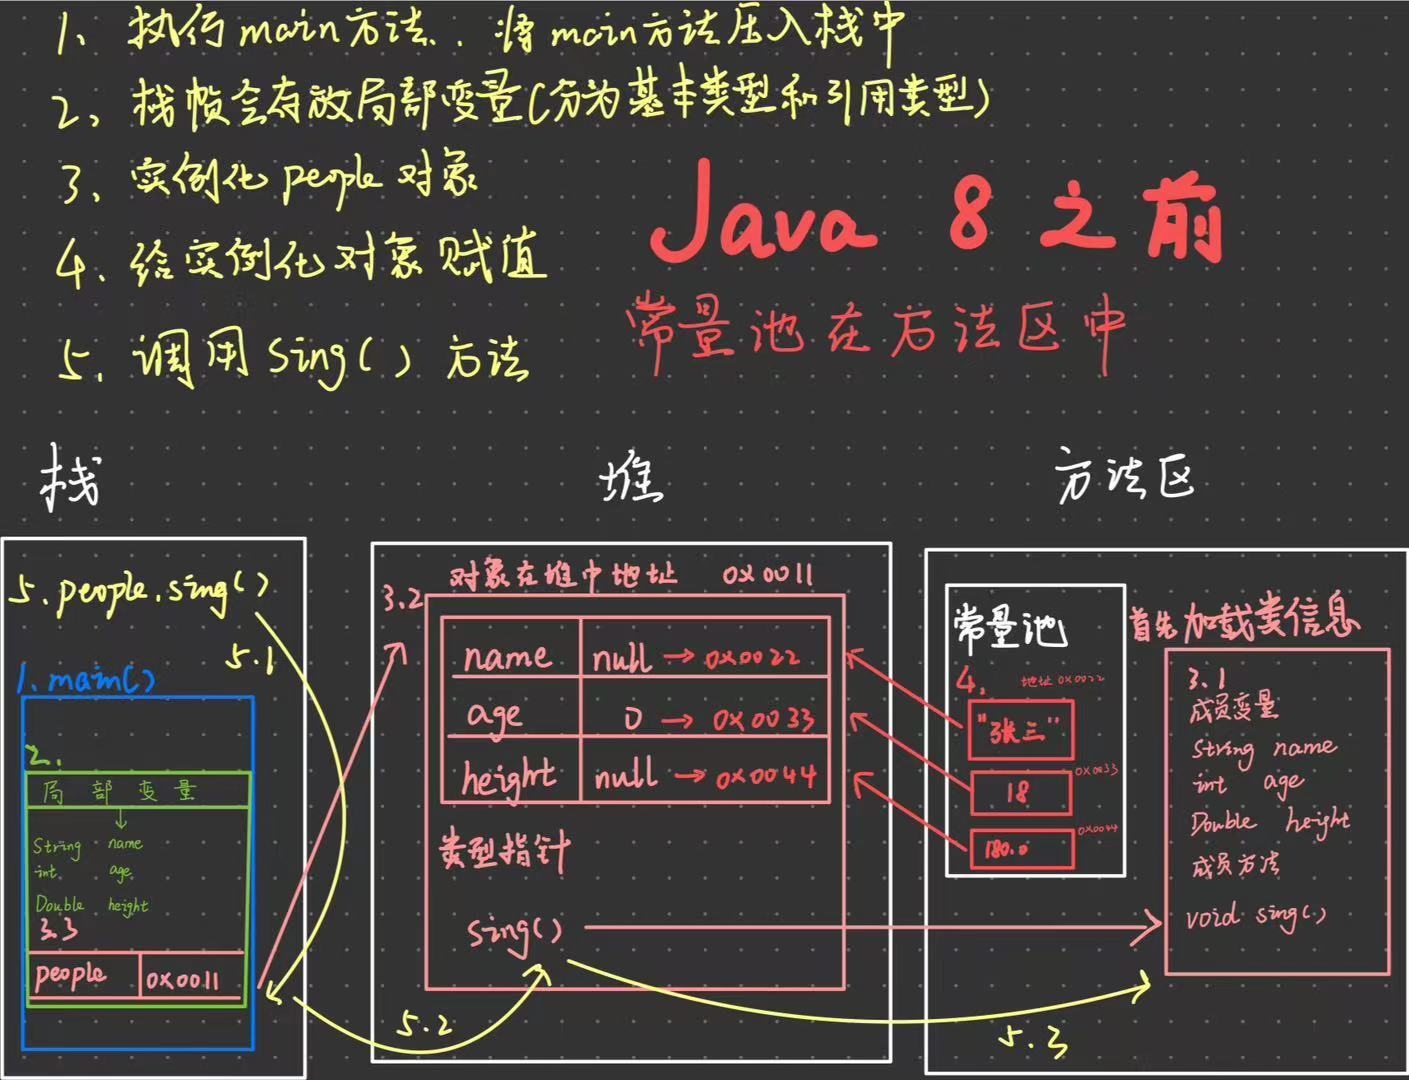 1、执行main方法、将main方法压入栈中
2、栈帧会存放局部变量(分为基本类型和引用类型)
3、实例化people对象
4、给实例化对象赋值
5、调用Sing()方法
Java 8 之前
常量池在方法区中
栈
堆
方法区
5.people.sing()
5.1
1.main()
2.
局部变量
String name
int age
Double height
3.3
people 0x0011
5.2
对象在堆中地址 0x0011
3.2
name null → 0x0022
age 0 → 0x0033
height null → 0x0044
类型指针
sing()
常量池
4. 地址 0x0022
"张三"
0x0033
18
0x0044
180.0
首先加载类信息
3.1
成员变量
String name
int age
Double height
成员方法
void sing()
5.3